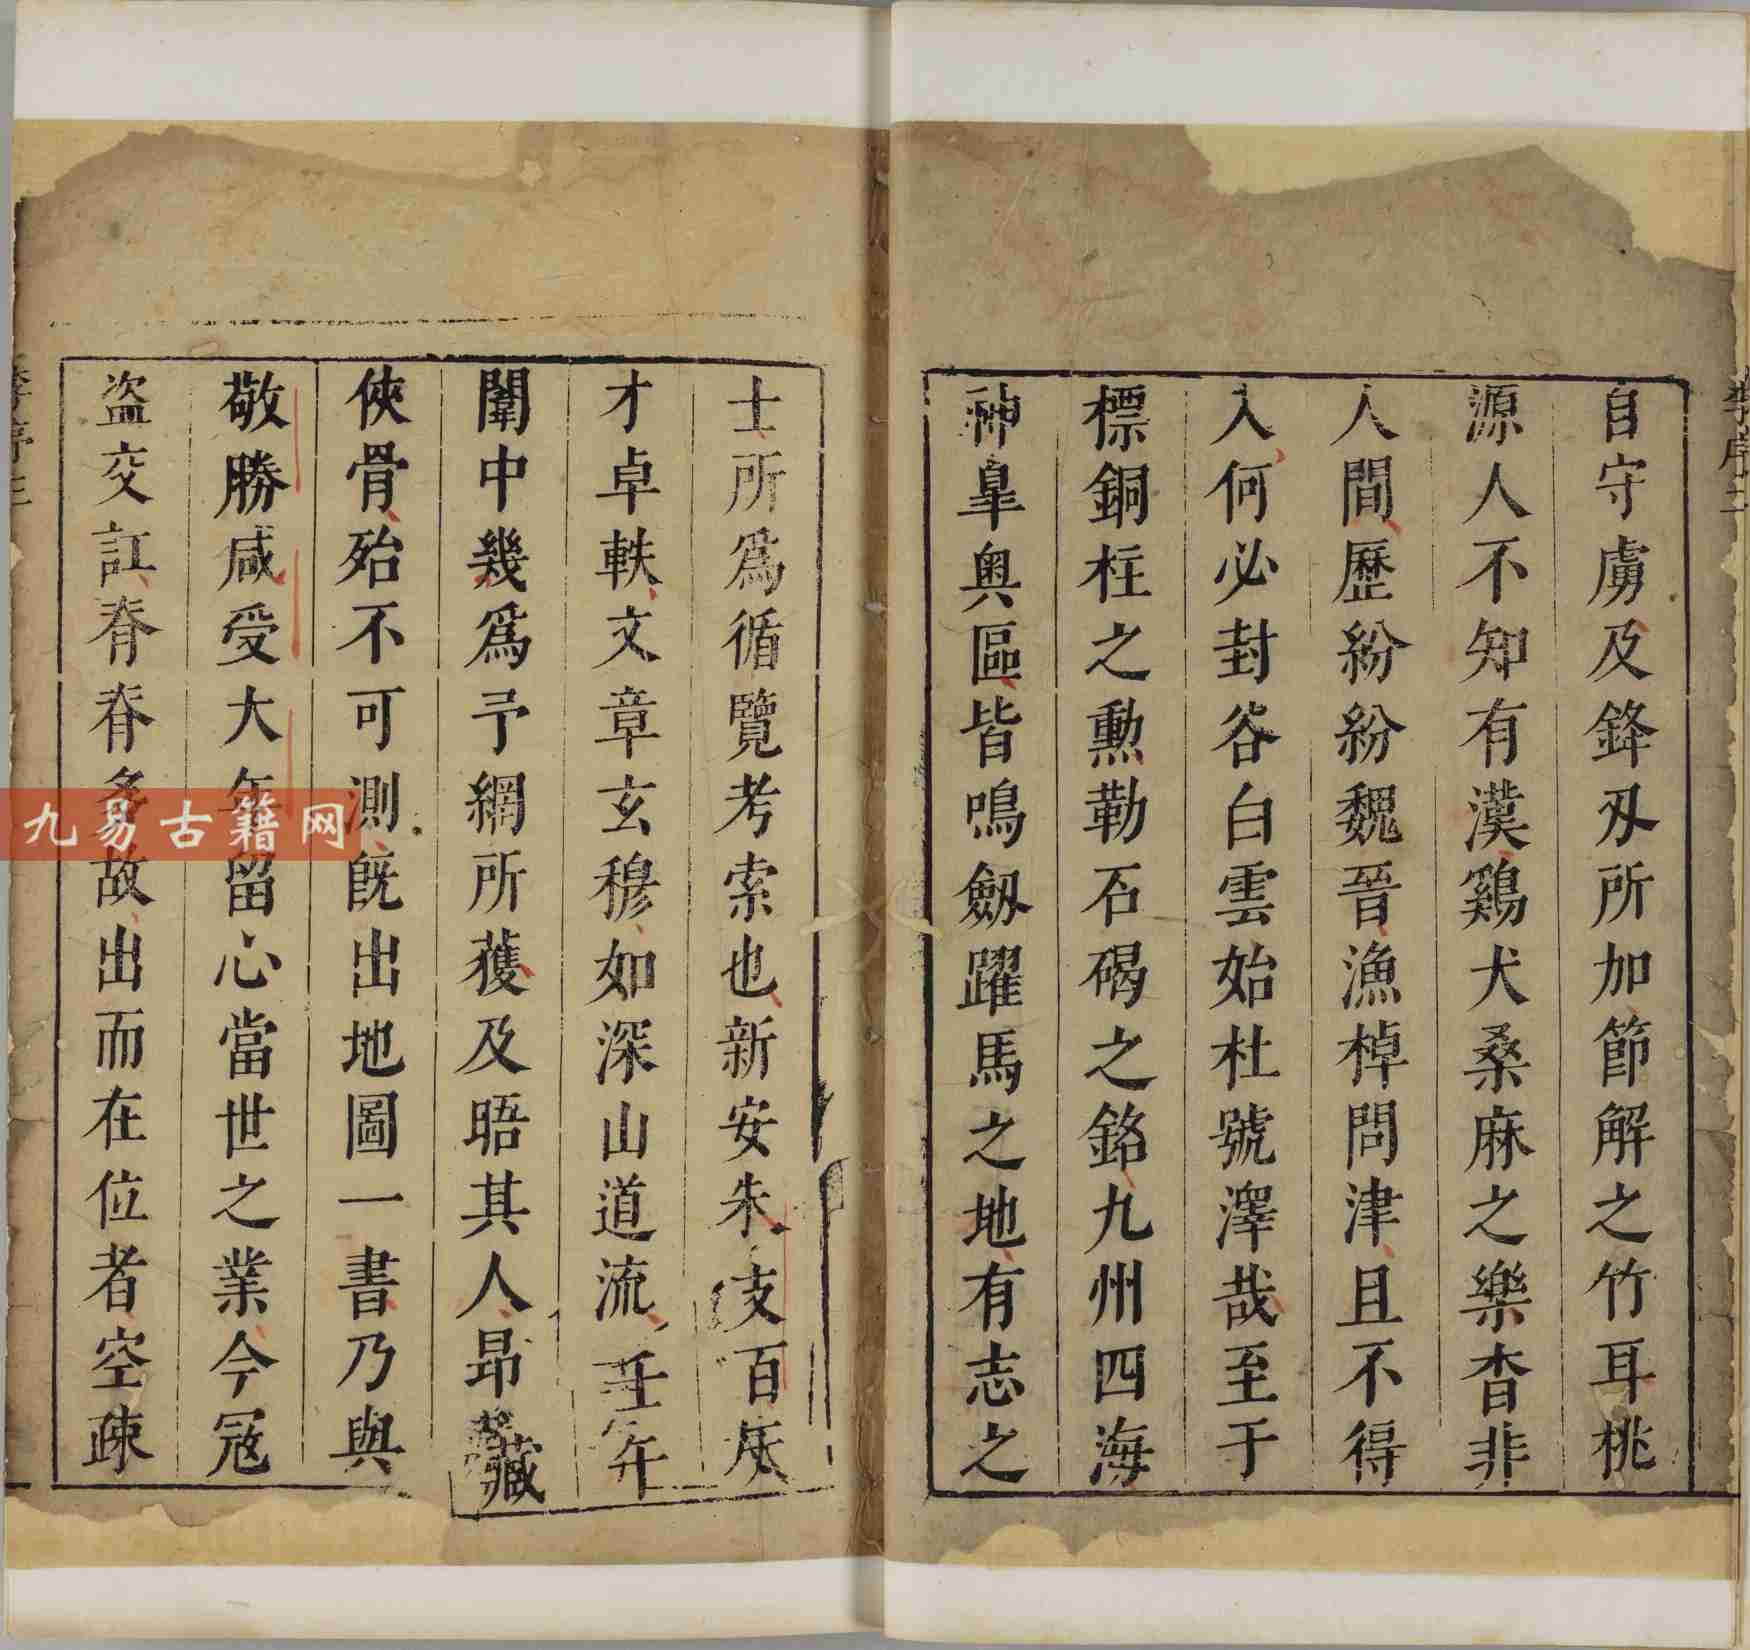 李序二
自守虜及鋒刄所加節解之竹耳桃
源人不知有漢鷄犬桑麻之樂杳非
人間歷紛紛魏晉漁棹問津且不得
入何必封谷白雲始杜號澤哉至于
標銅柱之勲勒石碣之銘九州四海
神臯奥區皆鳴劔躍馬之地有志之
士所爲循覽考索也新安朱支百辰
才卓軼文章玄穆如深山道流壬午
闈中幾爲予網所獲及晤其人昂藏
俠骨殆不可測旣出地圖一書乃與
敬勝咸受大年留心當世之業今冦
盜交訌脊脊多故出而在位者空疎
九易古籍网